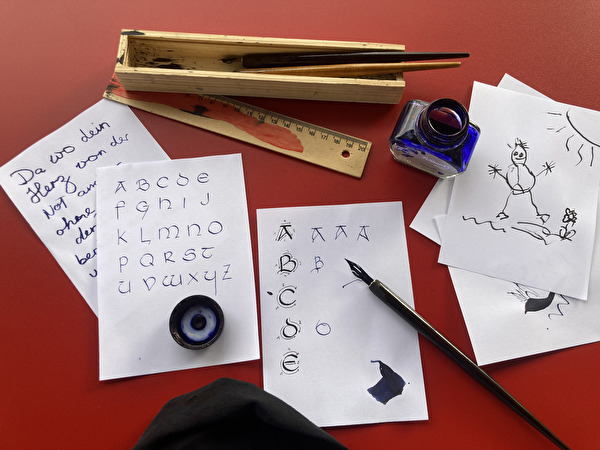 Da wo dein
Herz von der
Not
ohne
der
A B C D E
F G H I J
K L M N O
P Q R S T
U V W X Y Z
A A A A
B B
C
D
E